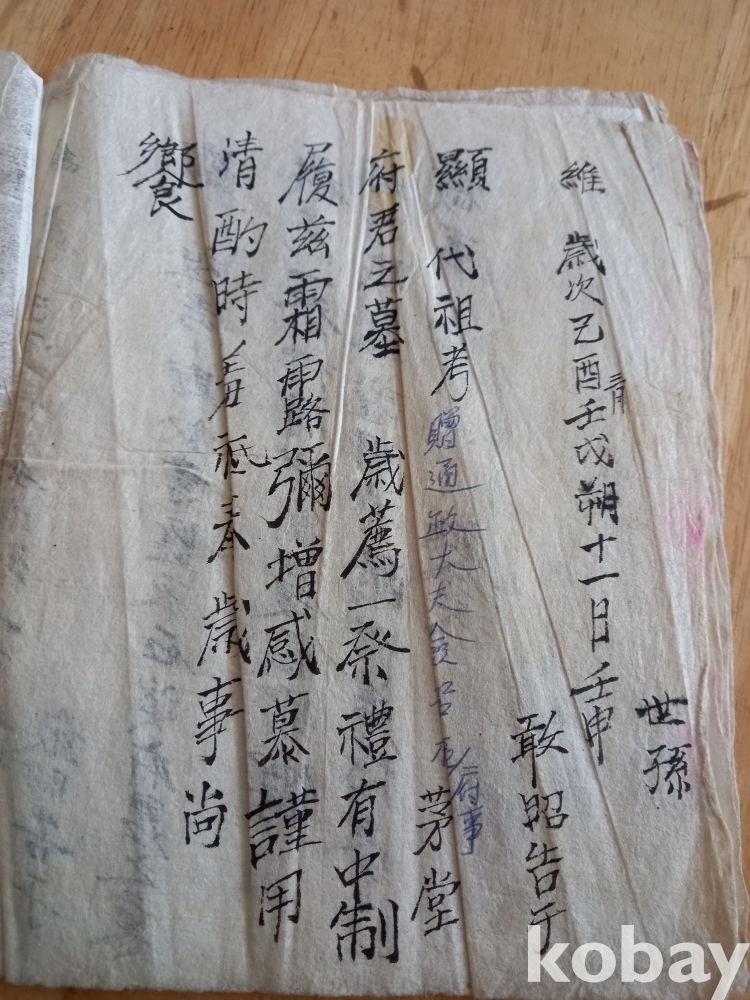 維 歲次己酉三月壬戌朔十一日壬申
世孫
敢昭告于
顯 代祖考 贈通政大夫僉 府事 茅堂
府君之墓 歲薦一祭禮有中制
履玆霜露彌增感慕謹用
清酌時羞祗奉歲事尚
饗
kobay